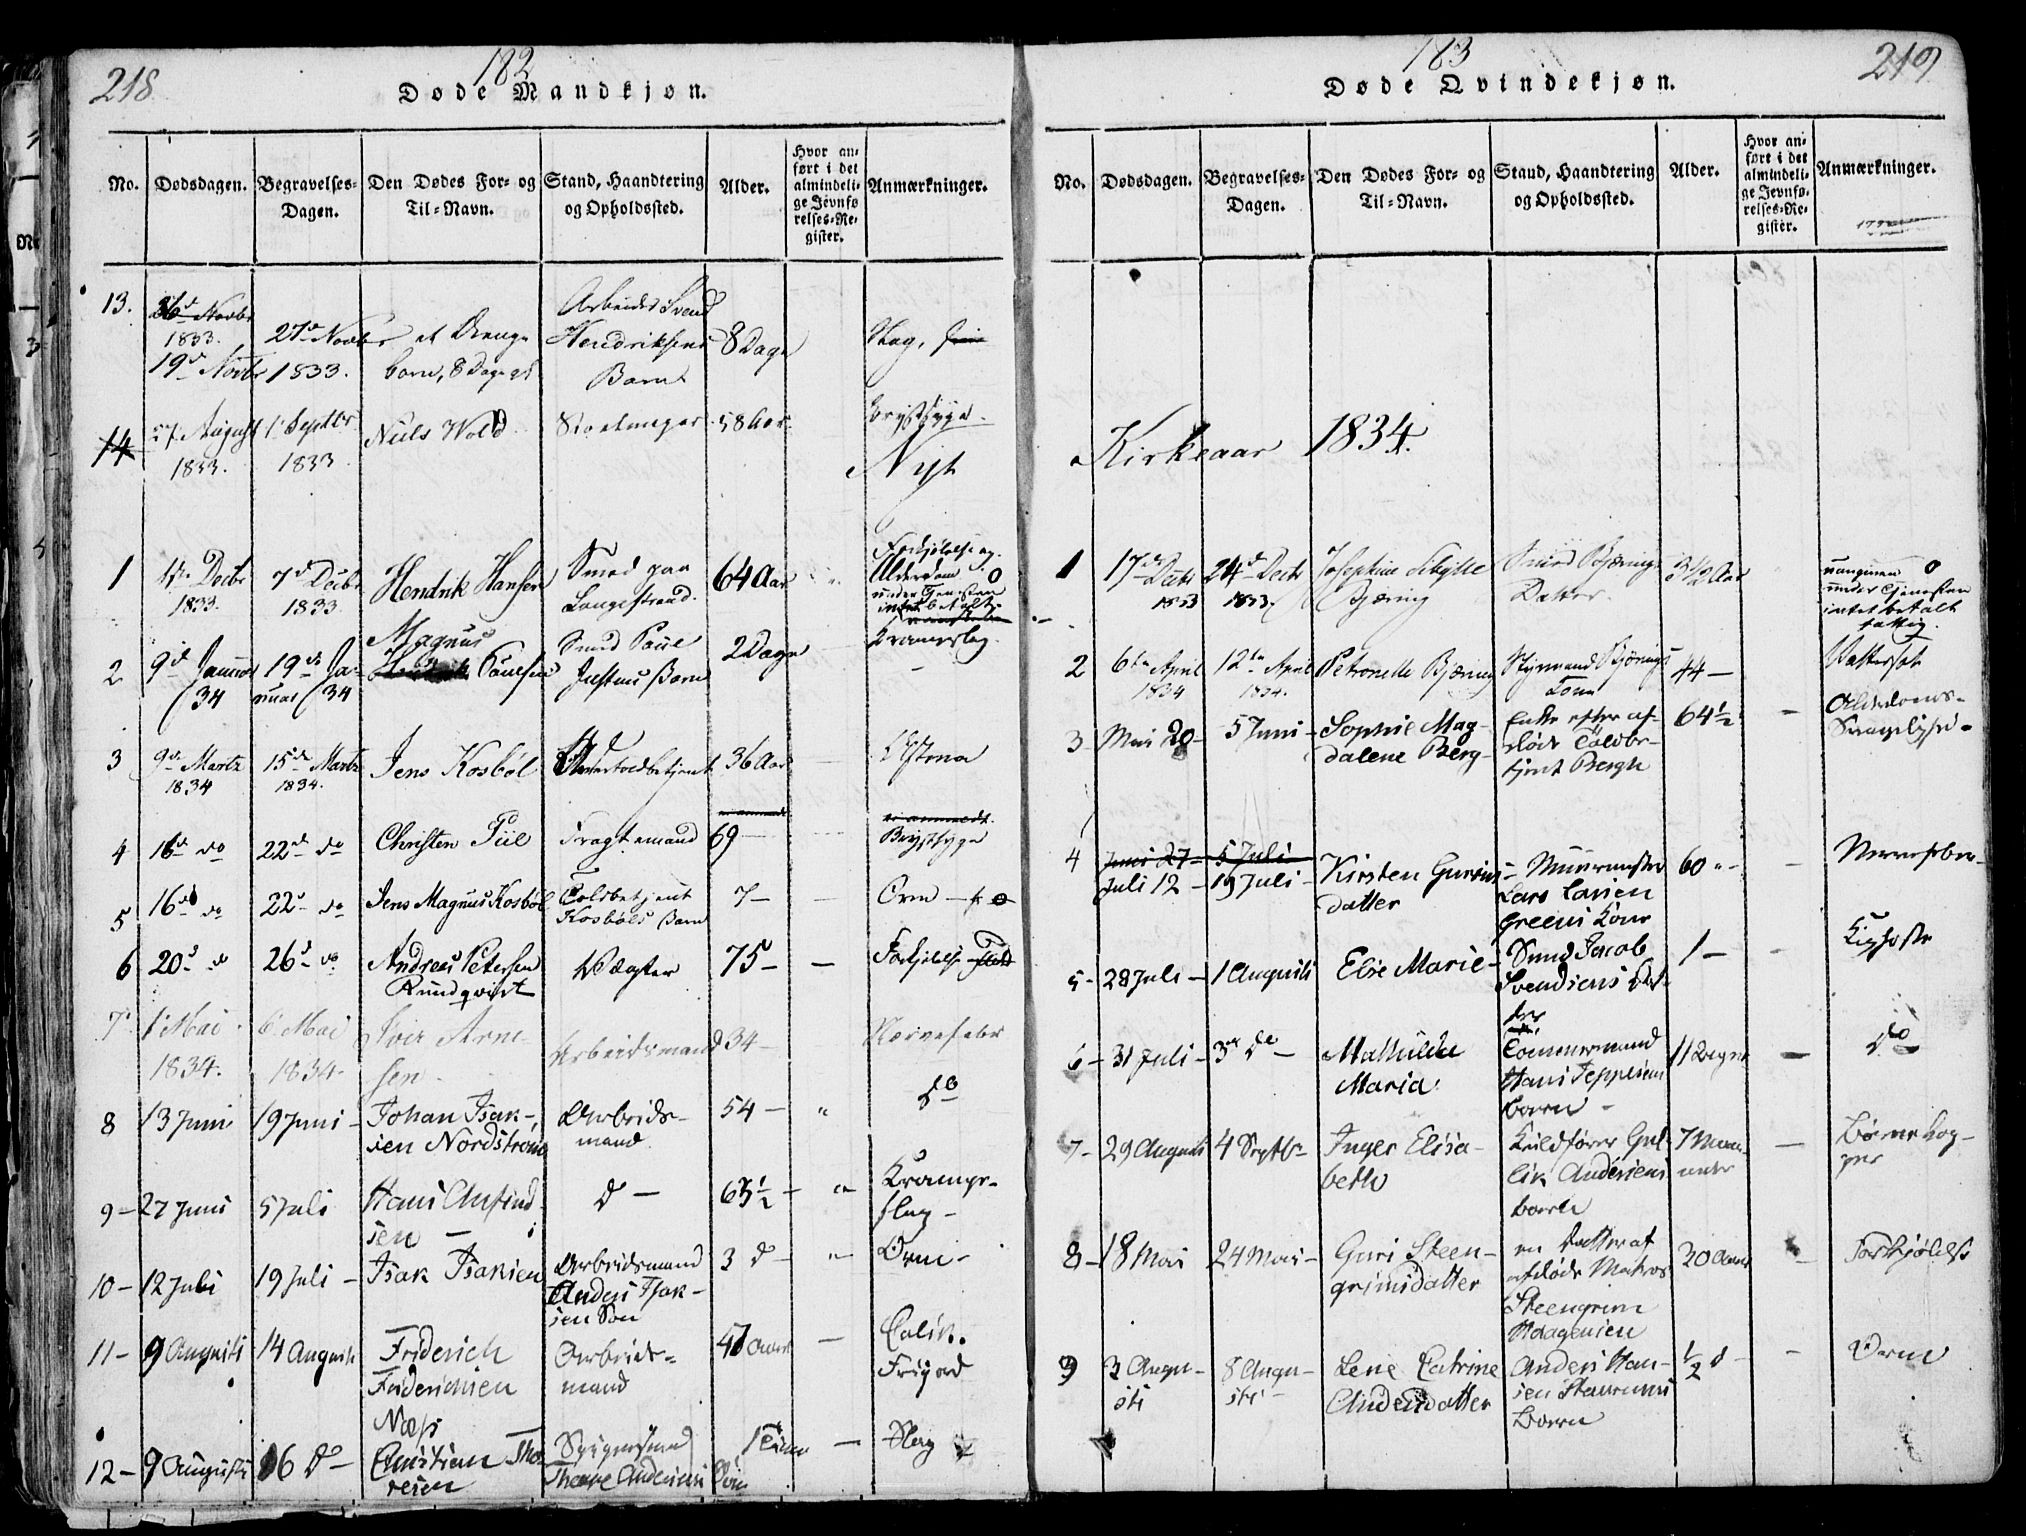 218
182
Døde Mandkjøn.
No. Dødsdagen. Begravelses-Dagen. Den Dødes For- og Til-Navn. Stand, Haandtering og Opholdssted. Alder. Hvor anført i det almindelige Jevnførelses-Register. Anmærkninger.
13. 26d Novbr 1833. 19d Novbr 27d Novbr 1833. et Drenge barn, 8 Dage gl Arbeids Svend Hendriksens Barn 8 Dage Slag,
14 27 August 1833. 1 Septbr 1833 Niels Wold 58 Aar. Brystsyge
Nyt
1 1ste Decbr 1833. 7d Decbr 1833 Hendrik Hansen Smed paa Langestrand. 64 Aar Forkjølelse og Alderdom 0 under Tjenesten intet betalt
2 9d Januar 34 19de Januar 34 Magnus Paulsen Smed Paul Justens Barn 2 Dage Krampeslag.
3 9de Martz 1834 15de Martz 1834. Jens Kosbøl Undertoldbetjent 36 Aar
4 16d do 22d do Christen Piil Fragtemand 69 Brystsyge
5 16d do 22d do Jens Magnus Kosbøl Tolbetjent Kosbøls Barn 7 — Orm
6 20d do 26d do Andreas Petersen Rundqvist Vægter 75 — Forkjølelse
7 1 Mai 1834. 6 Mai 1834 Iver Arnesen Arbeidsmand 34 — Nervefeber
8 13 Juni 19 Juni — Johan Isaksen Nordstrøm Arbeidsmand 54 — " do
9 — 27 Juni 5 Juli Hans Ansindsen — d — 63½ — " Krampeslag —
10 — 12 Juli 19 Juli — Isak Isaksen Arbeidsmand Anders Isaksen Søn 3 d — " Orm —
11 — 9 Augusti 14 Augusti Friderich Friderichsen Næss Arbeidsmand 47 Aar —
12 — 9 Augusti 16 d — Christian Thoresen Thore Andersens Søn — Slag
183
219
Døde Qvindekjøn.
No. Dødsdagen. Begravelses-Dagen. Den Dødes For- og Til-Navn. Stand, Haandtering og Opholdssted. Alder. Hvor anført i det almindelige Jevnførelses-Register. Anmærkninger.
Kirkeaar 1834.
1 17de Decbr 1833 24d Decbr 1833. Josephine Bjæring Bjørings Datter. 3 1/2 Aar 0 under Tjenesten intet betalt fattig.
2 6te April 1834 12te April 1834. Petronelle Bjæring Styrmand Bjørings Kone 44 — Vattersot
3 Mai 28 — 5 Juni — Sophie Magdalene Berg — Enke efter afdøde Toldbetjent Bergh 64½ — Alderdoms-Svagelighed —
4 Juni 27 — 5 Juli Juli 12 — 19 Juli — Kirsten Gunnersdatter — Muurmester Lars Larsen Greens Kone 60 " — — Nervefeber —
5 — 28 Juli — 1 Augusti Else Marie — Smed Jacob Svendsens Datter 1 — — Kighoste
6 — 31 Juli — 3de de — Mathilde Maria Tømmermand Hans Jeppesens barn — 11 Dage — do
7 — 29 Augusti 4 Septbr Inger Elisabeth Kuldfører Gullik Andersens barn 7 Maaneder — Børnekopper
8 — 18 Mai 24 Mai — Guri Steengrimsdatter en Datter af afdøde Matros Steengrim Haagensen 20 Aar — Forkjølelse
9 3 Augusti 8 Augusti — Lene Catrine Andersdatter Anders Hansen Barn ½ d — — Orm